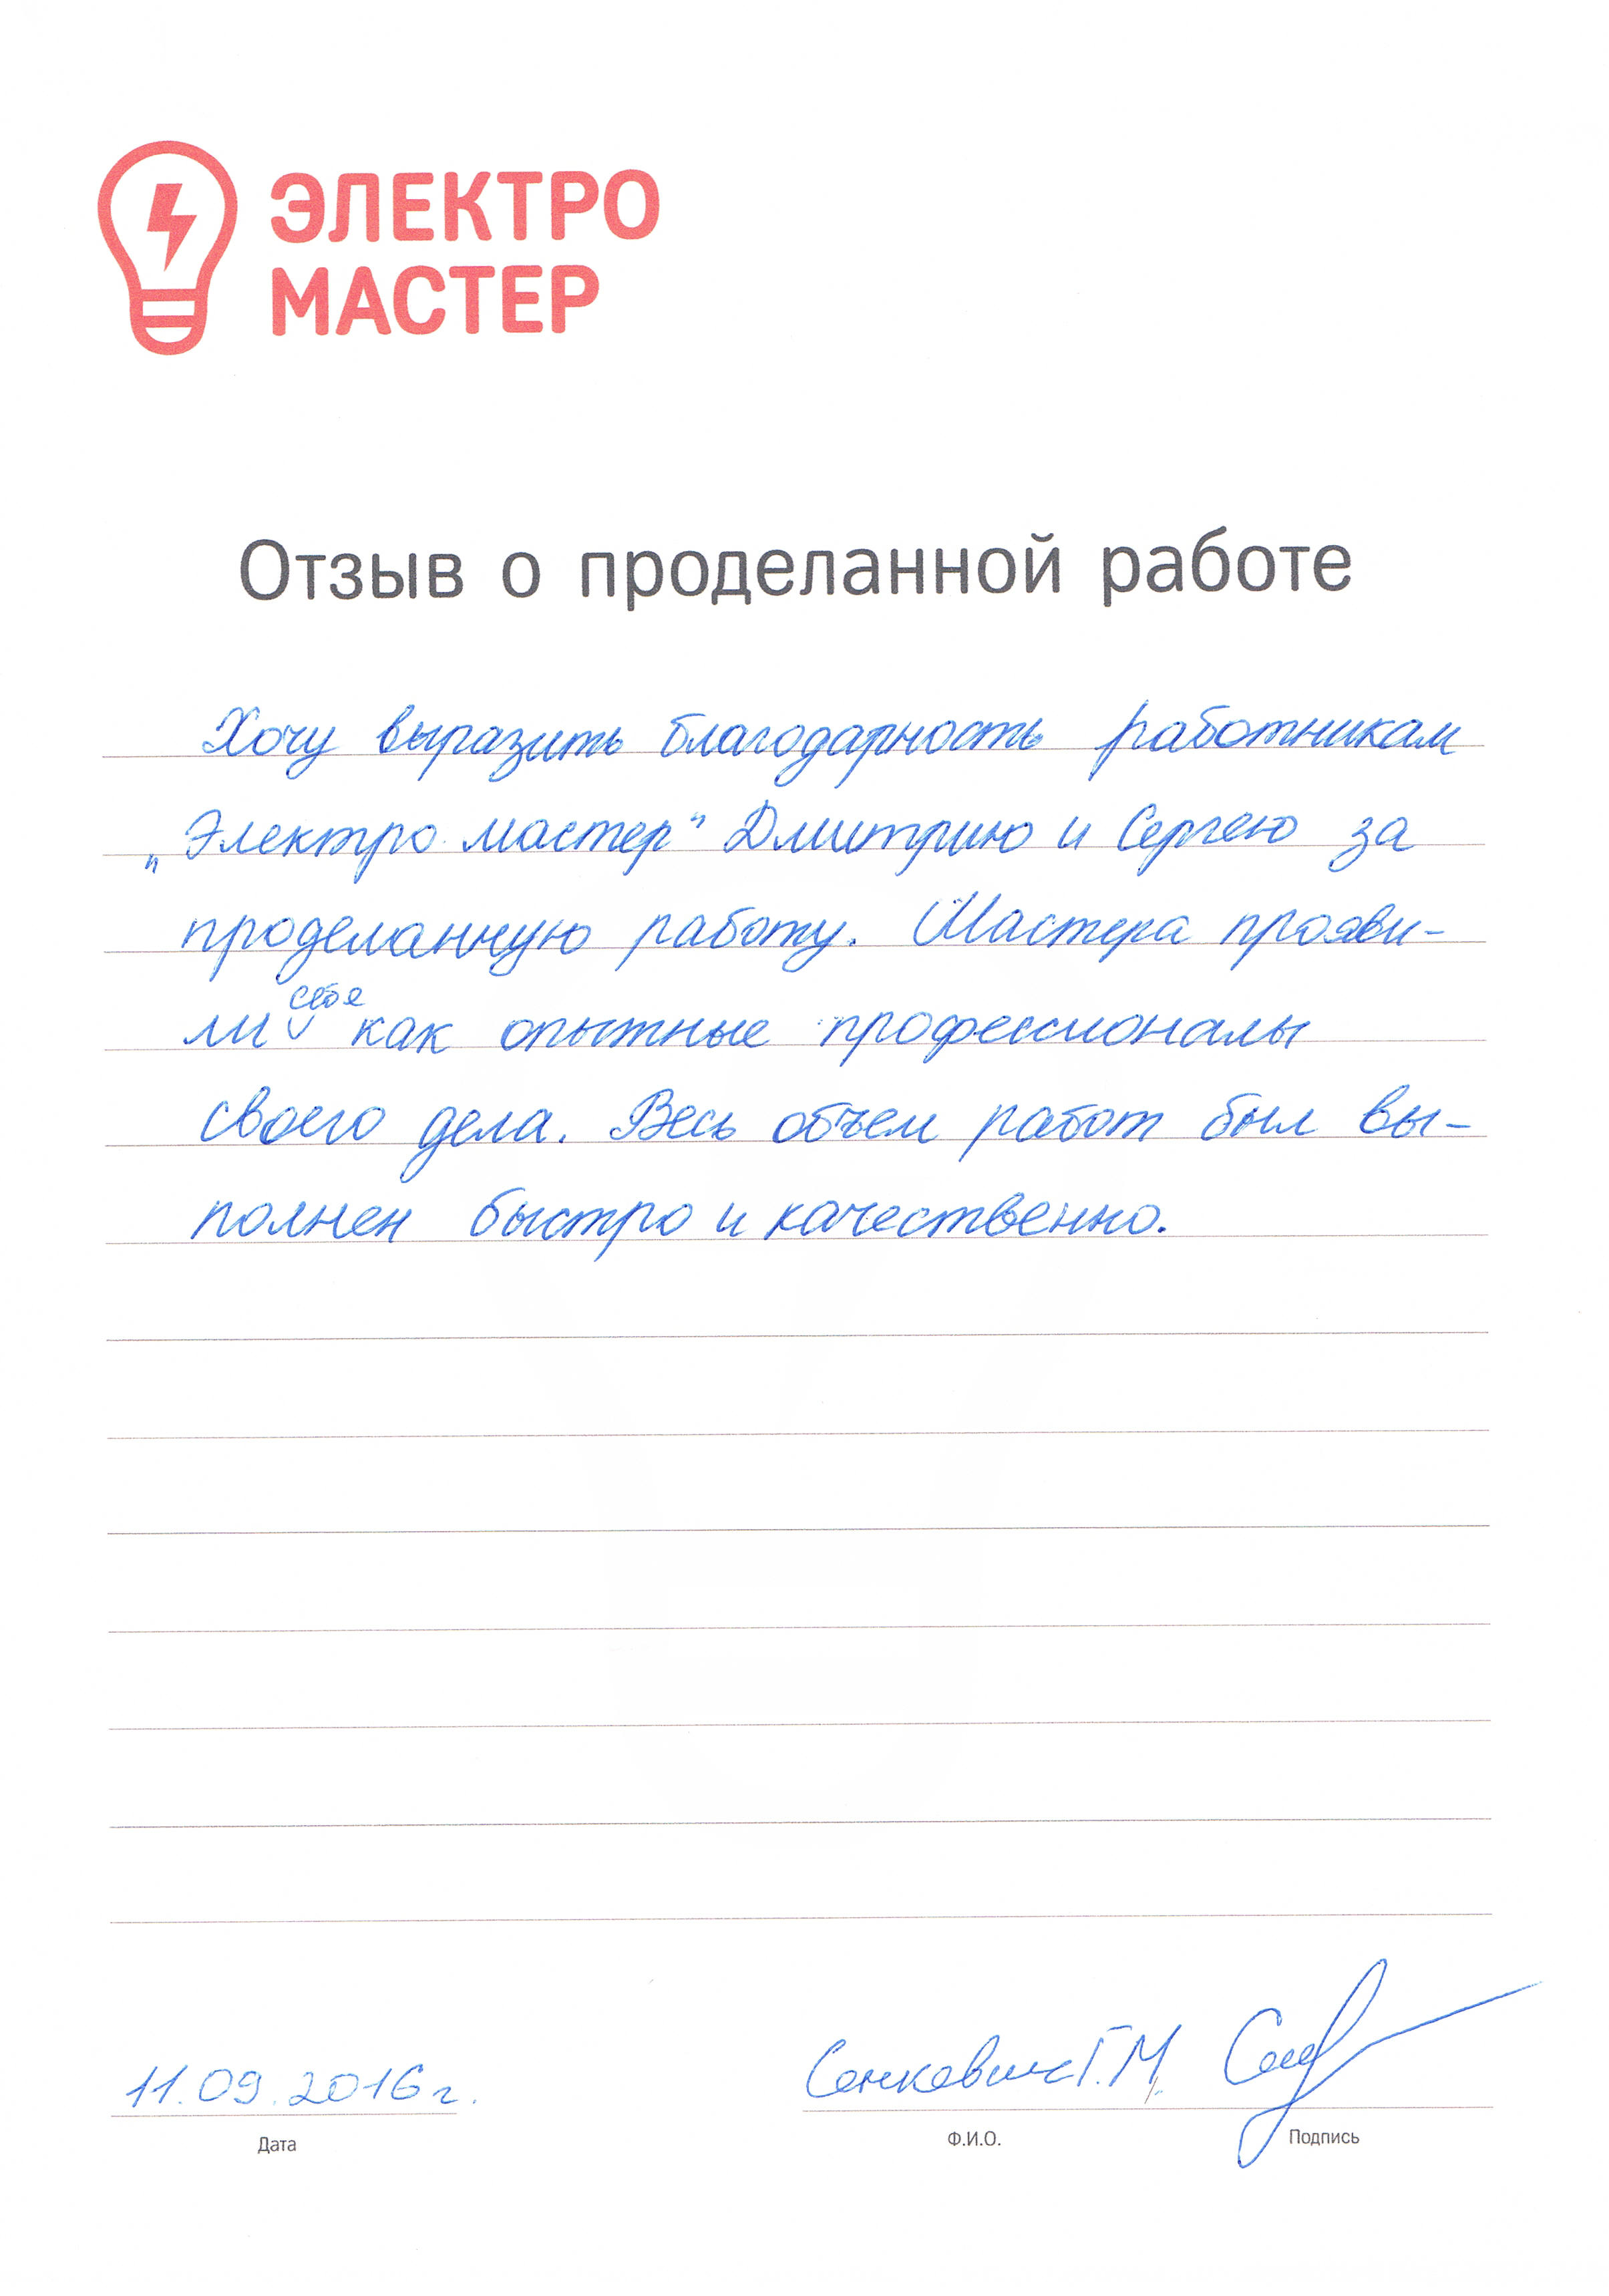 ЭЛЕКТРО
МАСТЕР
Отзыв о проделанной работе
Хочу выразить благодарность работникам
„Электро мастер" Дмитрию и Сергею за
проделанную работу. Мастера прояви-
ли себя как опытные профессионалы
своего дела. Весь объем работ был вы-
полнен быстро и качественно.
11.09.2016г.
Сенкевич Г.М.
Дата
Ф.И.О.
Подпись